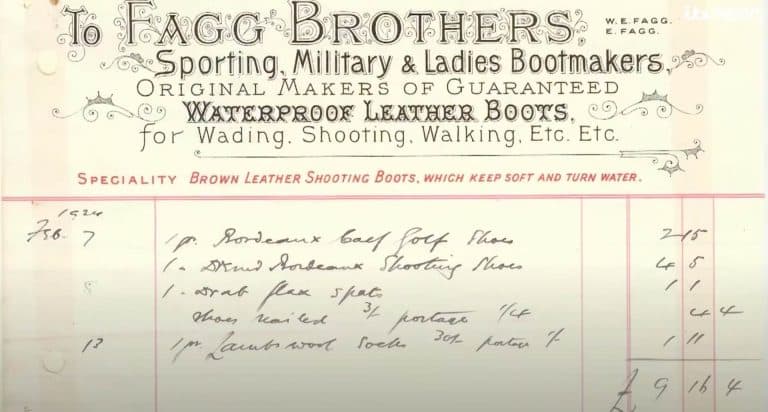 To FAGG BROTHERS,
W.E. FAGG.
E. FAGG.
Sporting, Military & Ladies Bootmakers,
ORIGINAL MAKERS OF GUARANTEED
WATERPROOF LEATHER BOOTS,
for Wading, Shooting, Walking, Etc. Etc.
SPECIALITY BROWN LEATHER SHOOTING BOOTS, WHICH KEEP SOFT AND TURN WATER.
1924
Feb. 7 1 pr. Bordeaux Calf Golf Shoes 2 15
1 - Bordeaux Shooting Shoes 4 5
8 1 - Drab flax spats 1 1
Shoes nailed 3/- postage 1/4 4 4
13 1 pr Lambswool Socks 30/- postage 1/- 1 11
£ 9 16 4